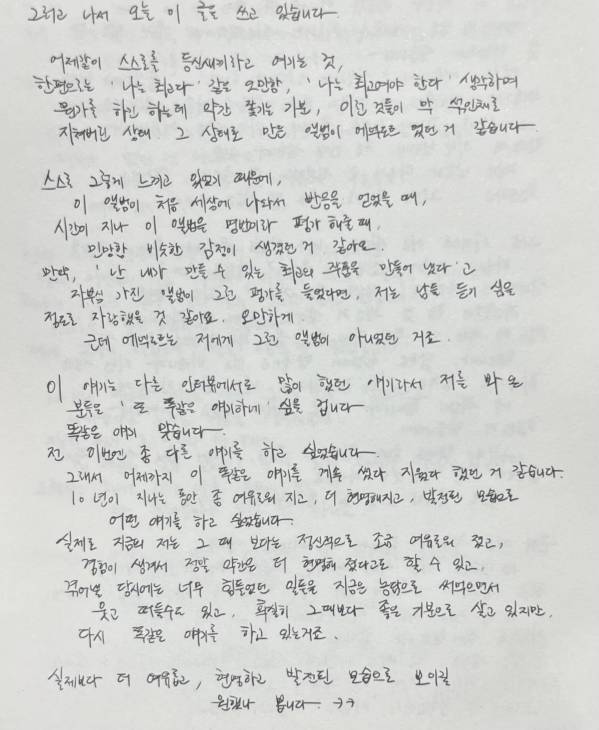 그러고 나서 오늘 이 글을 쓰고 있습니다.
어제같이 스스로를 등신새끼라고 여기는 것,
한편으로는 '나는 최고다' 같은 오만함, '나는 최고여야 한다' 생각하며
뭔가를 하긴 하는데 약간 쫓기는 기분, 이런 것들이 막 섞인채로
지쳐버린 상태 그 상태로 만든 앨범이 에픽하이 였던 거 같습니다.
스스로 그렇게 느끼고 있었기 때문에,
이 앨범이 처음 세상에 나와서 반응을 얻었을 때,
시간이 지나 이 앨범을 명반이라 평가 해줄 때,
민망함 비슷한 감정이 생겼던 거 같아요.
만약, '난 내가 만들 수 있는 최고의 작품을 만들어 냈다' 고
자부심 가진 앨범이 그런 평가를 들었다면, 저는 남들 듣기 싫을
정도로 자랑했을 것 같아요. 오만하게
근데 저에게 그런 앨범이 아니었던 거죠.
이 얘기는 다른 인터뷰에서도 많이 했던 얘기라서 저를 봐 온
분들은 '또 똑같은 얘기하네' 싶을 겁니다
똑같은 얘기 맞습니다.
전 이번엔 좀 다른 얘기를 하고 싶었습니다.
그래서 어제까지 이 똑같은 얘기를 계속 썼다 지웠다 했던 거 같습니다.
10년이 지나는 동안 좀 여유로워 지고, 더 현명해지고, 발전된 모습으로
어떤 얘기를 하고 싶었습니다.
실제로 지금의 저는 그 때 보다는 정신적으로 조금 여유로워 졌고,
경험이 생겨서 정말 약간은 더 현명해 졌다고도 할 수 있고,
겪어낼 당시에는 너무 힘들었던 일들을 지금은 농담으로 써먹으면서
웃고 떠들수도 있고, 확실히 그때보다 좋은 기분으로 살고 있지만,
다시 똑같은 얘기를 하고 있는거죠.
실제보다 더 여유롭고, 현명하고 발전된 모습으로 보이길
원했나 봅니다 ㅋㅋ